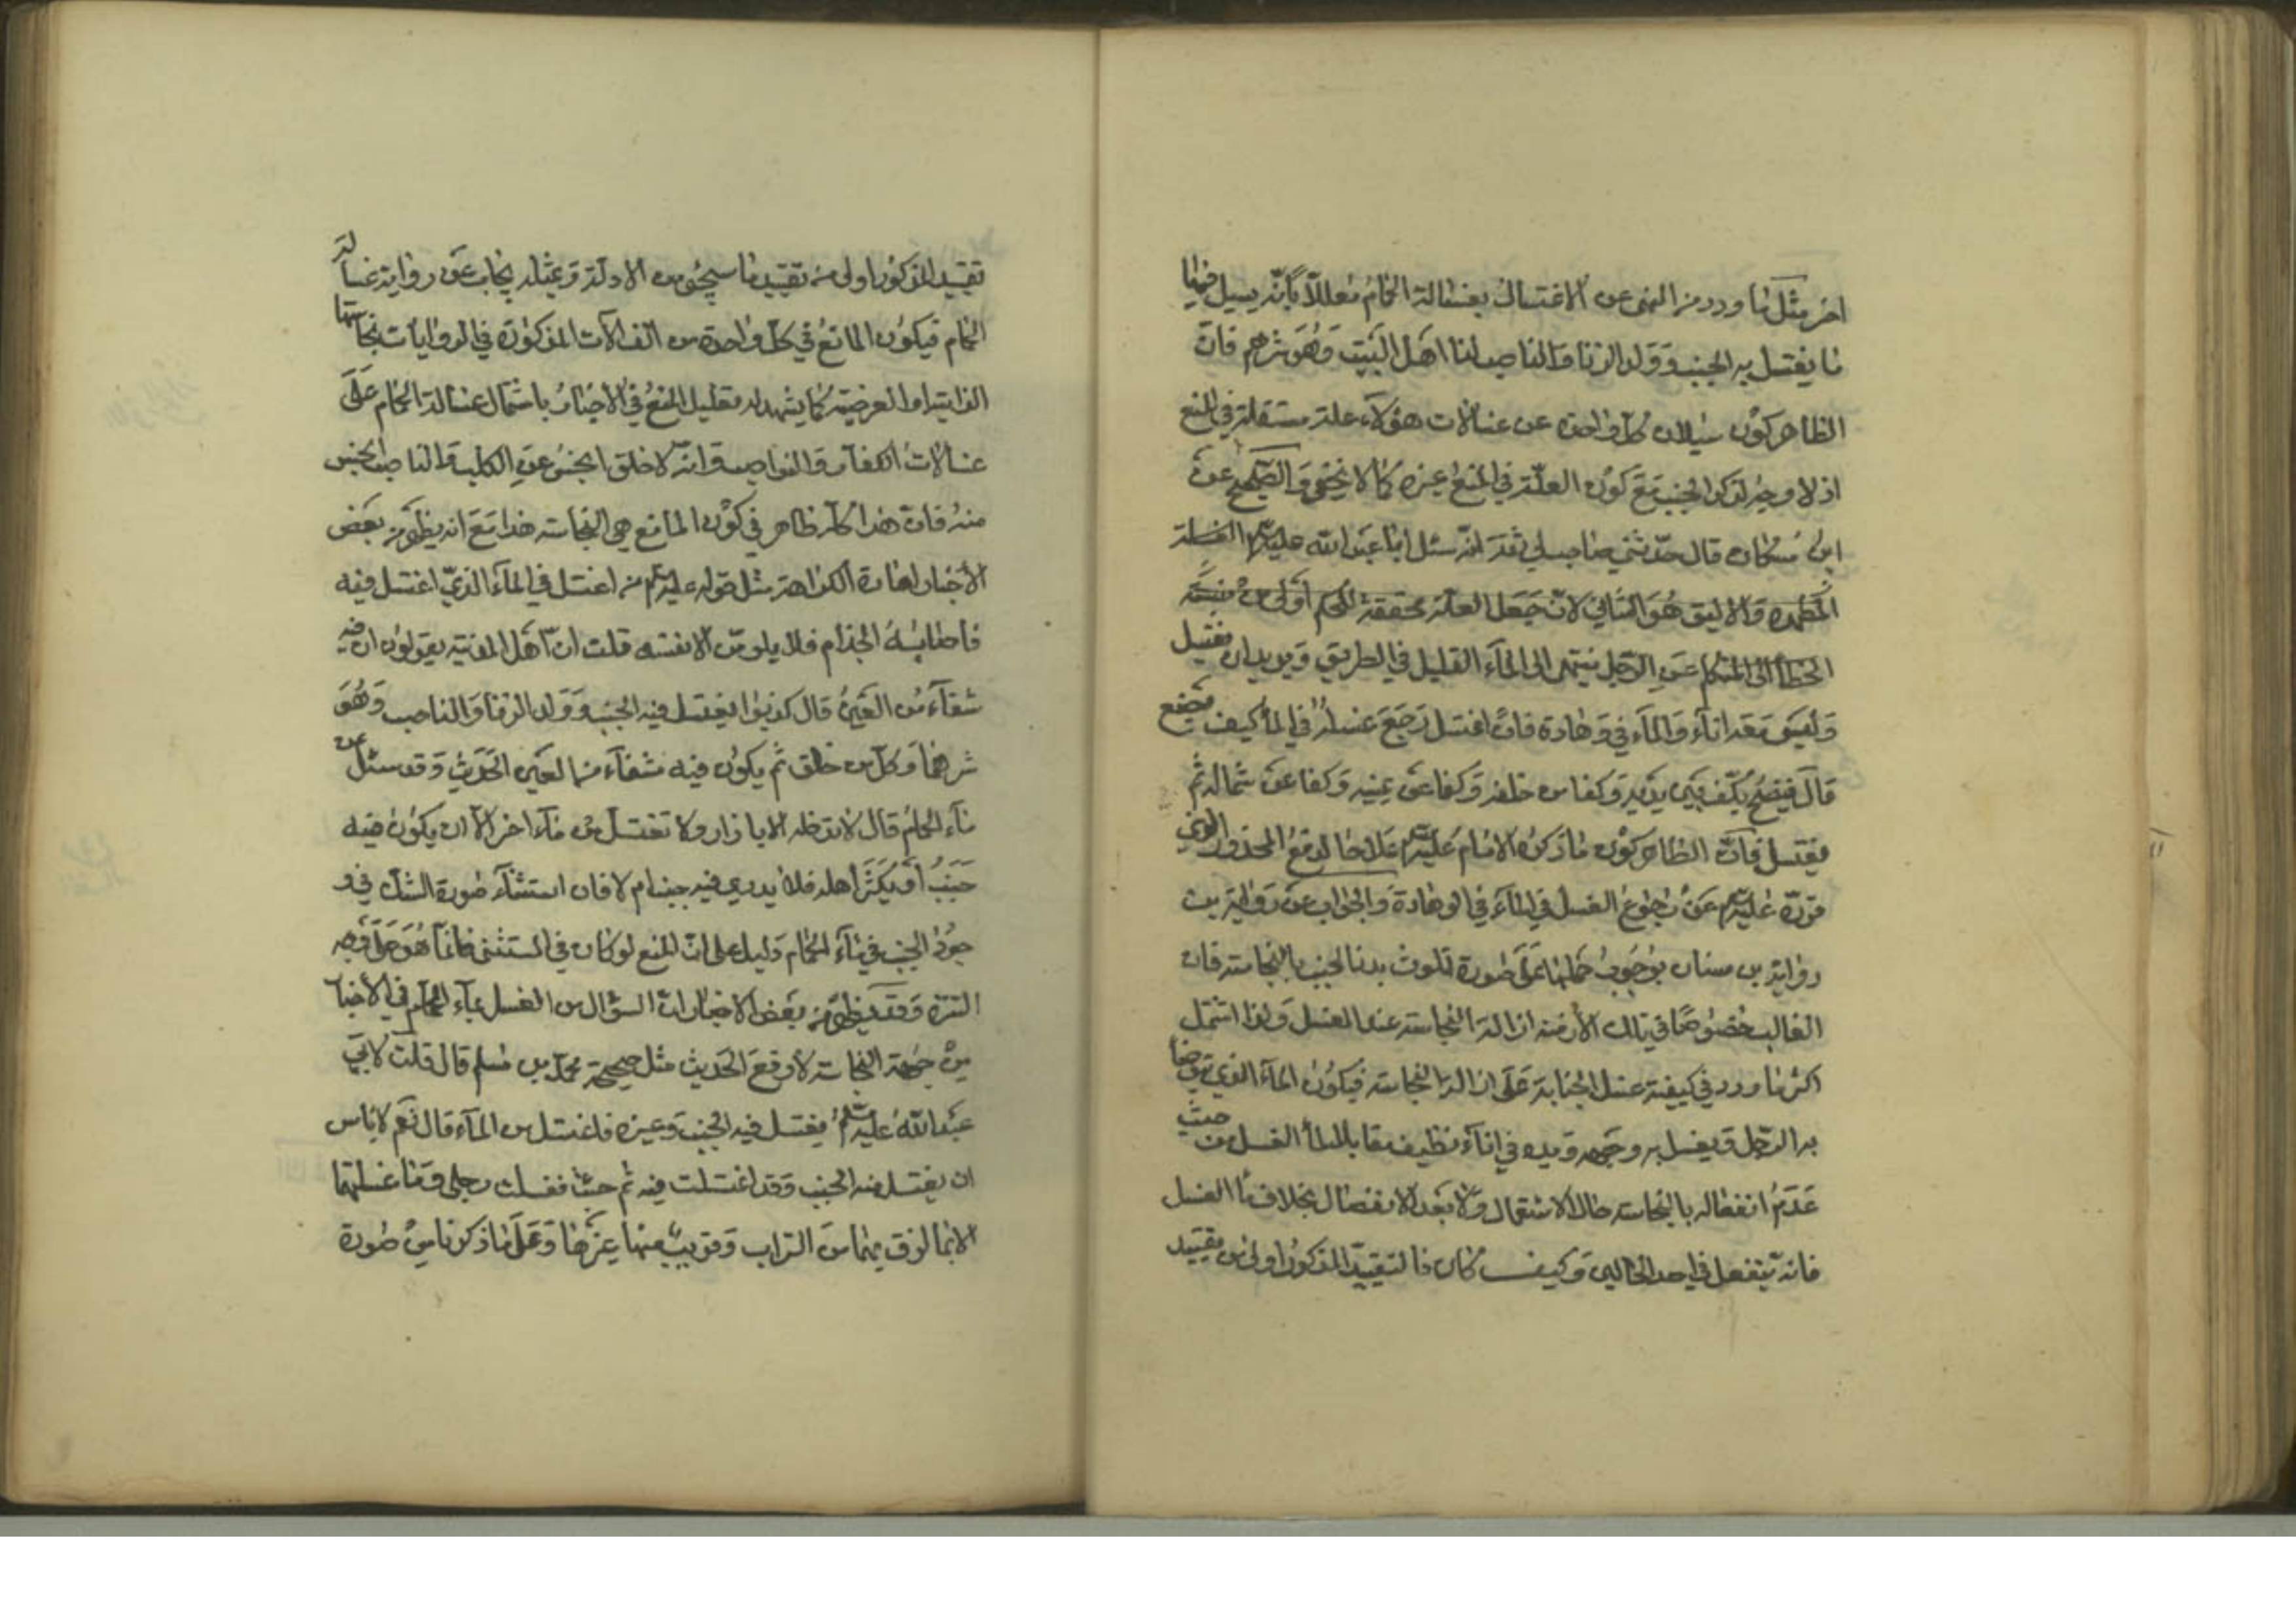 اخر مثل ما ورد من النهى عن الاغتسال بغسالة الحمام معللا بانه يسيل فيها
ما يغتسل به الجنب وولد الزنا والناصب لنا اهل البيت وهو شرهم فان
الظاهر كون سيلان كل واحدة من غسالات هؤلاء علة مستقلة في المنع
اذ لا وجه لذكر الجنب مع كون العلة في المنع غيره كما لا يخفى والصحيح عن
ابن مسكان قال حدثني صاحب لي ثقة انه سئل ابا عبد الله عليه السلام
والاليق هو الثاني لان جعل العلة محققة للحكم اولى من نسبة
الخطأ الى المتكلم عن الرجل ينتهى الى الماء القليل في الطريق ويريد ان يغتسل
وليس معه اناء والماء في وهادة فان اغتسل رجع غسله في الماء كيف يصنع
قال فينضح بكف بين يديه وكفا من خلفه وكفا عن يمينه وكفا عن شماله ثم
يغتسل فان الظاهر كون ما ذكره الامام عليه السلام علاجا لدفع المحذور الذي
قرره عليه السلام من رجوع الغسل في الماء في الوهادة والجواب عن رواية بن
رواية بن سنان بوجوب حملها على صورة تلوث بدن الجنب بالنجاسة فان
الغالب خصوصا في تلك الازمنة ازالة النجاسة عند الغسل ولذا اشتمل
اكثر ما ورد في كيفية غسل الجنابة على ازالة النجاسة فيكون الماء الذي توضأ
به الرجل ويغسل به وجهه ويده في اناء نظيف مقابلا لماء الغسل من حيث
عدم انفعاله بالنجاسة حال الاشتغال ولا بعد الانفصال بخلاف ماء الغسل
فانه ينفعل في احد الحالين وكيف كان فالتقييد المذكور اولى من تقييد
تقييد المذكور اولى من تقييد ما سيجئ من الادلة وبمثله يجاب عن رواية غسالة
الحمام فيكون المانع في كل واحدة من الغسالات المذكورة في الروايات نجاستها
الذاتية او العرضية كما يشهد له تعليل المنع في الاخبار باشتمال غسالة الحمام على
غسالات الكفار والنواصب وانه لا خلق انجس من الكلب والناصب انجس
منه فان هذا كله ظاهر في كون المانع هي النجاسة هذا مع انه يظهر من بعض
الاخبار افادة الكراهة مثل قوله عليه السلام من اغتسل في الماء الذي اغتسل فيه
فاصابه الجذام فلا يلومن الا نفسه قلت ان اهل المدينة يقولون ان فيه
شفاء من العين قال كذبوا يغتسل فيه الجنب وولد الزنا والناصب وهو
شرهما وكل من خلق ثم يكون فيه شفاء من العين الحديث وقد سئل عن
ماء الحمام قال لا تدخله الا بازار ولا تغتسل من ماء اخر الا ان يكون فيه
جنب او يكثر اهله فلا يدرى فيه جنب ام لا فان استثناء صورة الشك في و
جود الجنب في ماء الحمام دليل على ان المنع لو كان في المستثنى فانما هو على وجه
التنزه وقد يظهر من بعض الاخبار ان السؤال من الغسل بماء الحمام في الاخبار
من جهة النجاسة لا رفع الحديث مثل صحيحة محمد بن مسلم قال قلت لابي
عبد الله عليه السلام يغتسل فيه الجنب وغيره فاغتسل من الماء قال نعم لا باس
ان يغتسل منه الجنب وقد اغتسلت فيه ثم جئت فغسلت رجلي وما غسلتهما
الا بما لزق بهما من التراب وقريب منها غيرها وعلى ما ذكرنا من صورة